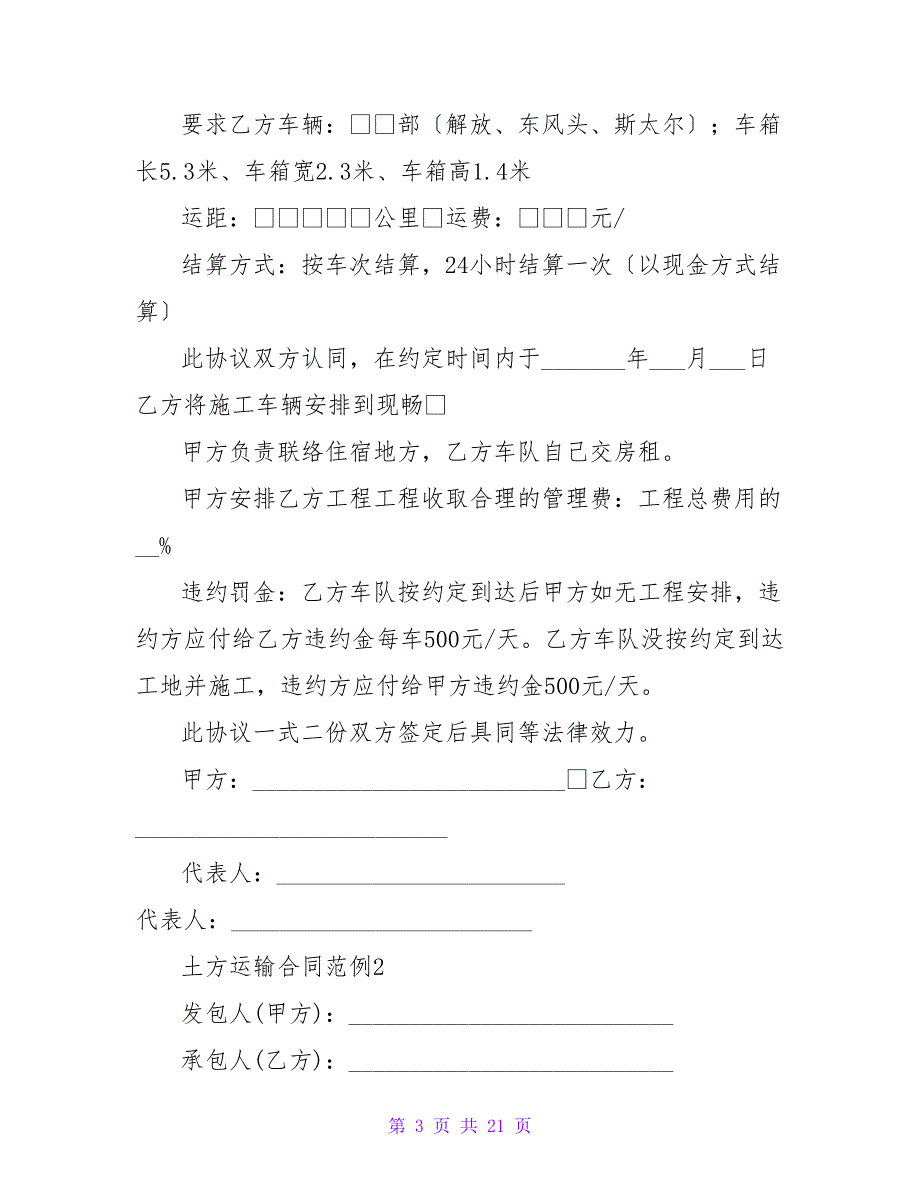 要求乙方车辆：□□部〔解放、东风头、斯太尔〕；车箱
长5.3米、车箱宽2.3米、车箱高1.4米
运距：□□□□□公里□运费：□□□元/
结算方式：按车次结算，24小时结算一次〔以现金方式结
算〕
此协议双方认同，在约定时间内于_______年___月___日
乙方将施工车辆安排到现畅□
甲方负责联络住宿地方，乙方车队自己交房租。
甲方安排乙方工程工程收取合理的管理费：工程总费用的
__%
违约罚金：乙方车队按约定到达后甲方如无工程安排，违
约方应付给乙方违约金每车500元/天。乙方车队没按约定到达
工地并施工，违约方应付给甲方违约金500元/天。
此协议一式二份双方签定后具同等法律效力。
甲方：__________________________□乙方：
__________________________
代表人：________________________
代表人：_________________________
土方运输合同范例2
发包人(甲方)：___________________________
承包人(乙方)：___________________________
第 3 页 共 21 页